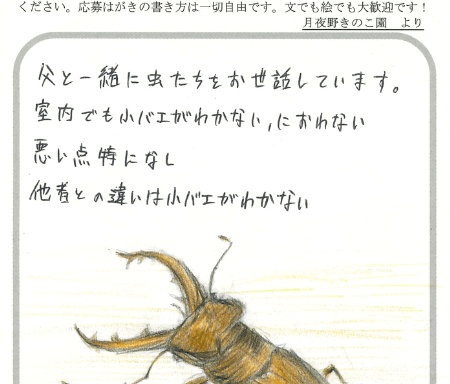 ください。応募はがきの書き方は一切自由です。文でも絵でも大歓迎です！
月夜野きのこ園　より
父と一緒に虫たちをお世話しています。
室内でも小バエがわかない,におわない
悪い点特になし
他者との違いは小バエがわかない